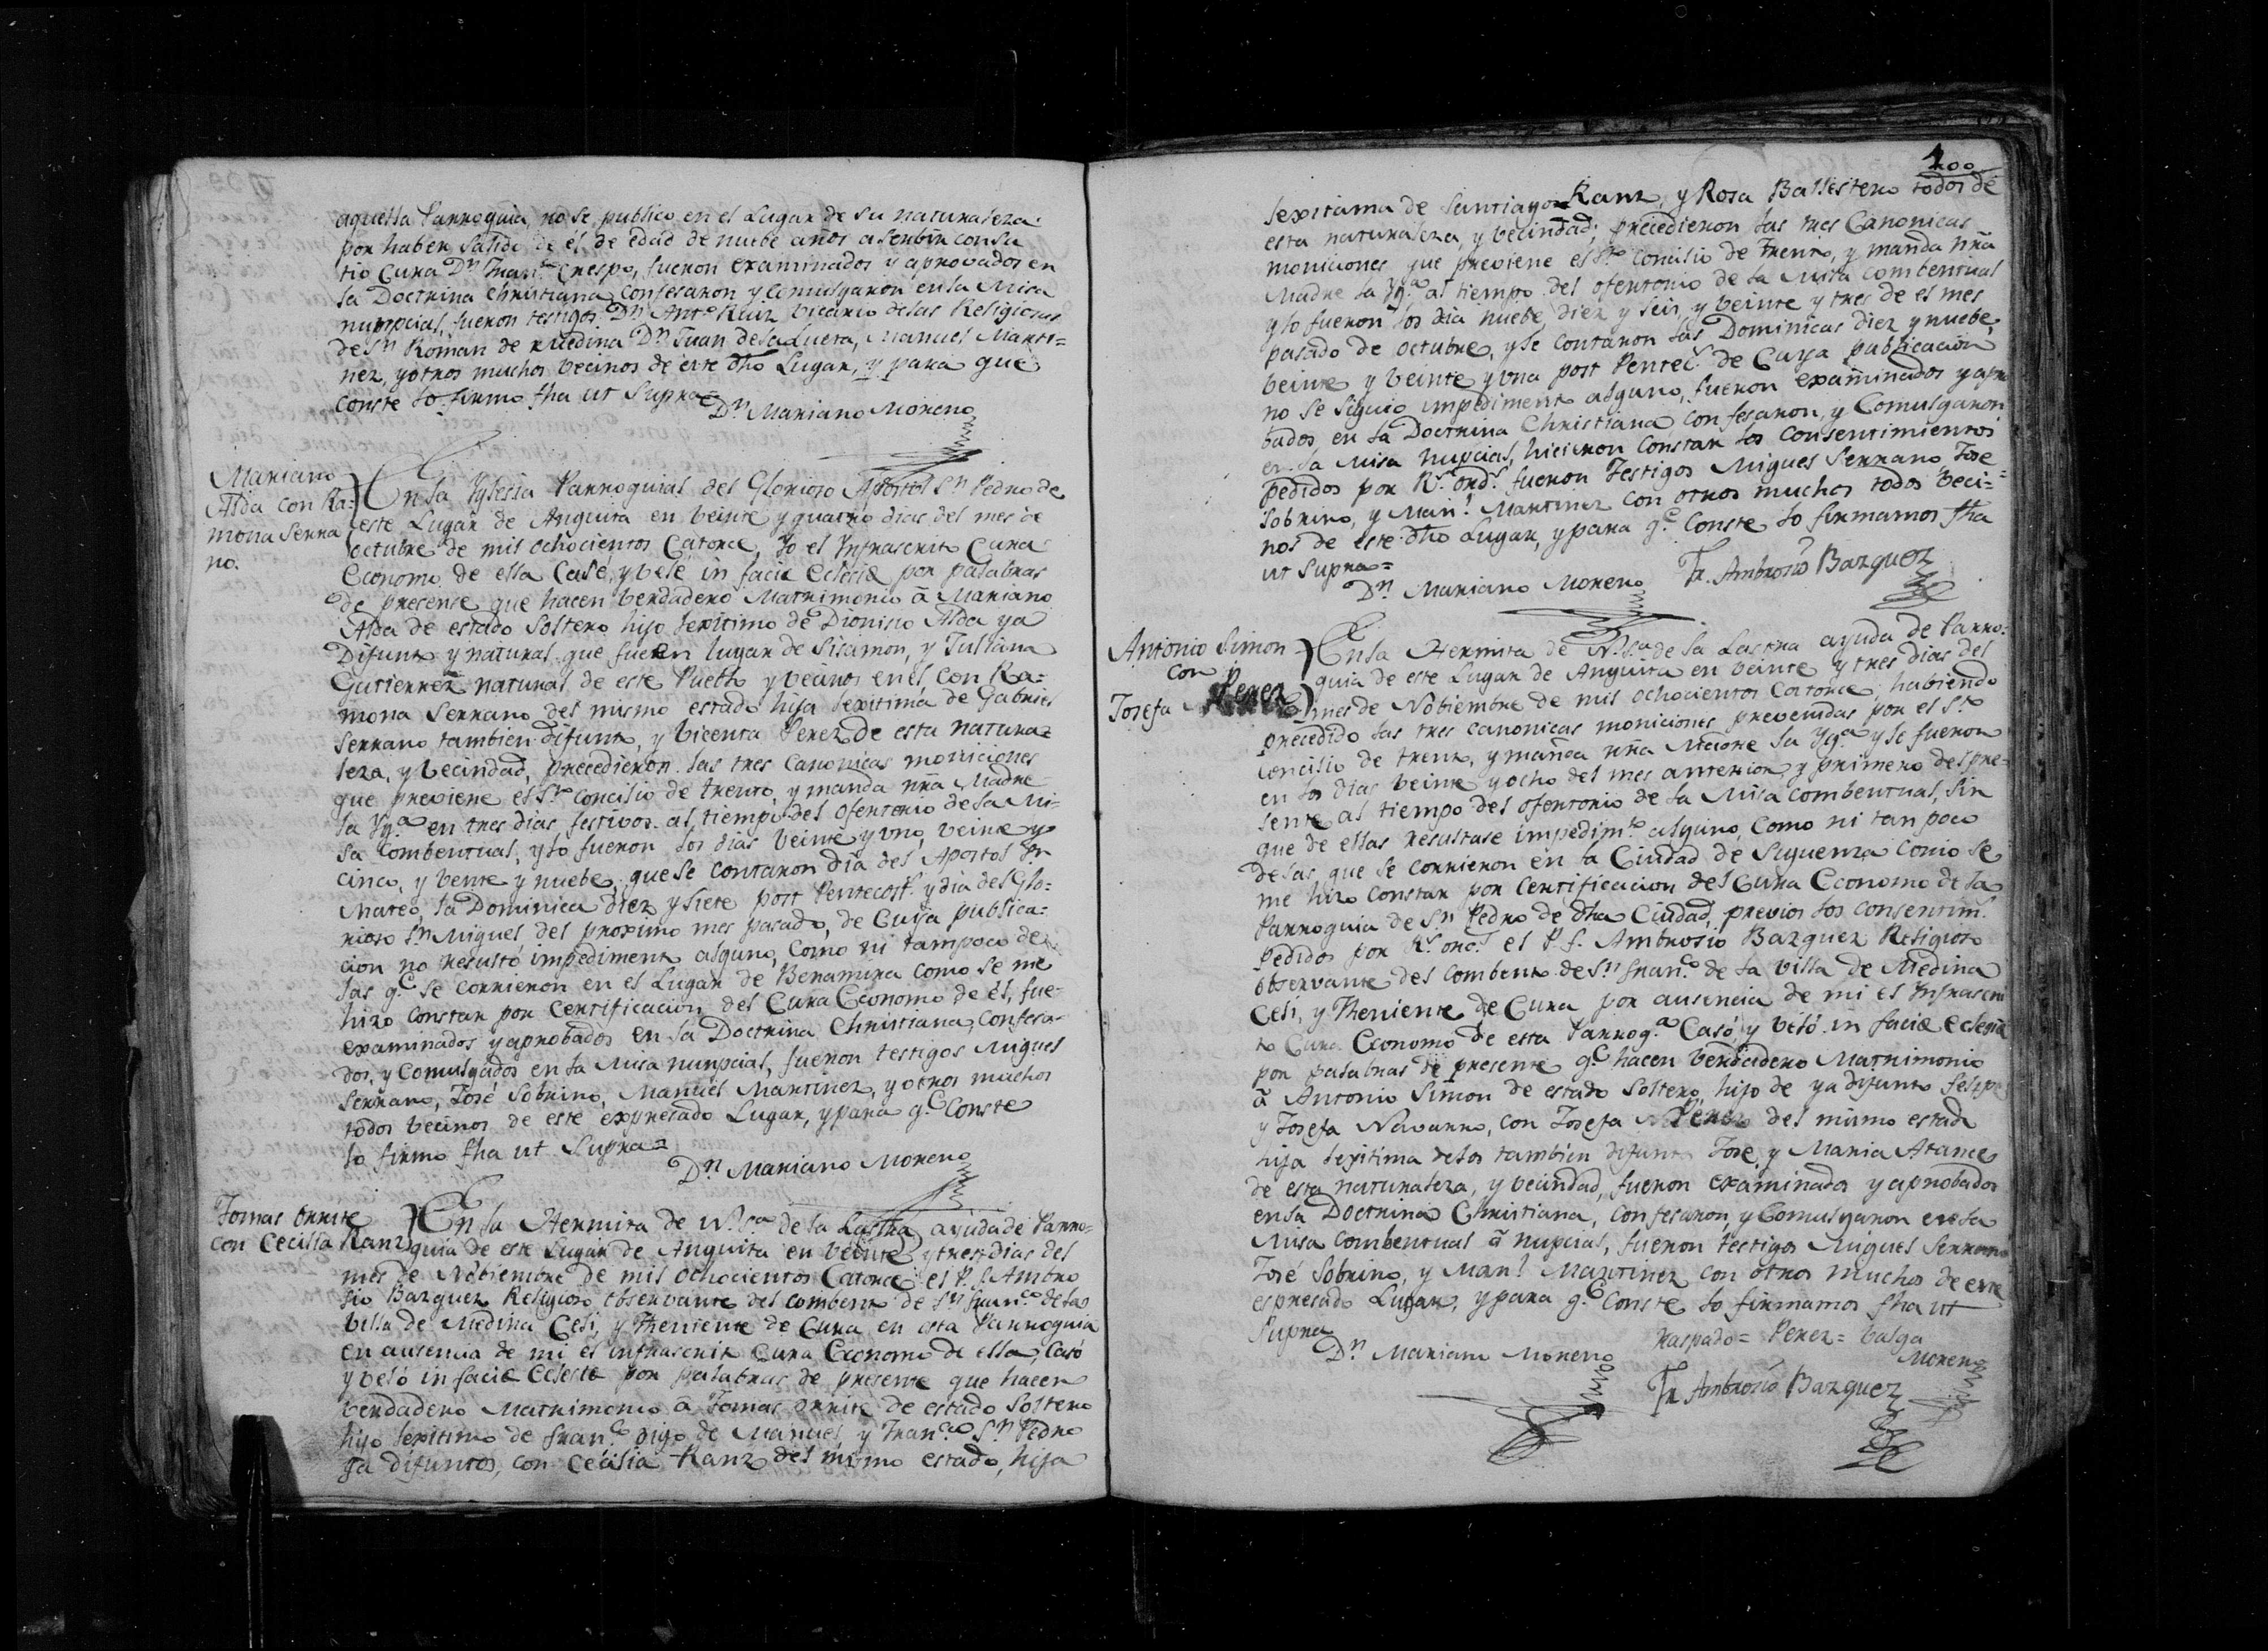 aquella Parroquia, no se publico en el Lugar de su naturaleza
por haber salido de él de edad de nuebe años a serbir con su
tio Cura Dn. Fran.co Crespo, fueron examinados y aprovados en
la Doctrina Christiana, confesaron y Comulgaron en la Misa
numpcial, fueron testigos Dn. Ant.o Ruiz Vicario de las Religiosas
de Sn. Roman de Medina Dn. Juan de la Lueta, Manuel Marti=
nez, y otros muchos vecinos de este dho Lugar, y para que
conste lo firmo fha ut Supra=
Dn. Mariano Moreno
Mariano
Alda con Ra=
mona Serra
no.
En la Yglesia Parroquial del Glorioso Apostol Sn. Pedro de
este Lugar de Anguita en beinte y quatro dias del mes de
octubre de mil ochocientos Catorce, Yo el Ynfrascrito Cura
Economo de ella Casé, y belé in facie eclesiæ por palabras
de presente que hacen berdadero Matrimonio â Mariano
Alda de estado Soltero hijo lexitimo de Dionisio Alda ya
Difunto y natural que fue en lugar de Sisamon, y Juliana
Gutierrez natural de este Pueblo y vecinos en el, con Ra=
mona Serrano del mismo estado hija lexitima de Gabriel
Serrano tambien difunto, y Vicenta Perez de esta natura=
leza, y vecindad, precedieron las tres Canonicas moniciones
que previene el S.to Concilio de trento, y manda nra Madre
la Yg.a en tres dias festivos al tiempo del ofertorio de la Mi=
sa Combentual, y lo fueron los dias beinte y uno, veinte y
cinco, y bente y nuebe, que se contaron dia del Apostol Sn.
Mateo, la Dominica diez y siete post Pentecost. y dia del Glo=
rioso Sn. Miguel del proximo mes pasado, de Cuya publica=
cion no resultó impedimento alguno, como ni tampoco de
las q.e se corrieron en el Lugar de Benamira como se me
hizo constar por Certificacion del Cura Economo de él, fue=
examinados y aprobados en la Doctrina Christiana, Confesa=
dos, y Comulgados en la Misa numpcial, fueron testigos Miguel
Serrano, José Sobrino, Manuel Martinez, y otros muchos
todos vecinos de este expresado Lugar, y para q.e Conste
lo firmo fha ut Supra=
Dn. Mariano Moreno
Tomas orrite
con Cecilia Ranz
En la Hermita de N.a S.ra de la Lastra ayuda de Parro=
quia de este Lugar de Anguita en beinte y tres dias del
mes de Nobiembre de mil ochocientos Catorce el P. f. Ambro
sio Bazquez Religioso observante del combento de Sn. Fran.co de la
billa de Medina Celi, y Theniente de Cura en esta Parroquia
en ausencia de mi el infrascrito Cura Economo de ella, Casó
y beló in facie Eclesie por palabras de presente que hacen
berdadero Matrimonio a Tomas orrite de estado Soltero
hijo lexitimo de Fran.co digo de Manuel y Fran.ca Sn. Pedro
ya difuntos, con Cecilia Ranz del mismo estado, hija
200
lexitama de Santiago Ranz, y Rosa Ballestero todos de
esta naturaleza, y vecindad; precedieron las tres Canonicas
moniciones que previene el S.to Concilio de trento, y manda nra
Madre la Yg.a al tiempo del ofertorio de la Misa combentual
y lo fueron los dia nuebe, diez y seis, y beinte y tres de el mes
pasado de octubre, y se contaron las Dominicas diez y nuebe,
beinte y beinte y una post Pentec. de Cuya publicacion
no se siguio impedimento alguno, fueron examinados y apro
bados en la Doctrina Christiana confesaron, y Comulgaron
en la Misa nupcial, hicieron constar los consentimientos
pedidos por R.s ord.s fueron testigos Miguel Serrano Jose
Sobrino, y Man.l Martinez con otros muchos todos beci=
nos de este dho Lugar, y para q.e Conste lo firmamos fha
ut Supra=
Dn. Mariano Moreno Fr. Ambrosio Bazquez
Antonio Simon
con
Josefa Perez
En la Hermita de N.a S.ra de la Lastra ayuda de Parro=
quia de este Lugar de Anguita en beinte y tres dias del
mes de Nobiembre de mil ochocientos Catorce, habiendo
precedido las tres canonicas moniciones prevenidas por el S.to
concilio de trento, y manda nra Madre la Yg.a y se fueron
en los dias beinte y ocho del mes anterior, y primero del pre=
sente al tiempo del ofertorio de la Misa combentual, sin
que de ellas resultase impedim.to alguno, como ni tan poco
de las que se corrieron en la Ciudad de Siguenza como se
me hizo constar por Certificacion del Cura Economo de la
Parroquia de Sn. Pedro de dha Ciudad, previos los consentim.s
pedidos por R.s ord.s el P. f. Ambrosio Bazquez Religioso
observante del combento de Sn. Fran.co de la billa de Medina
Celi, y Theniente de Cura por ausencia de mi el Ynfrascri
to Cura Economo de esta Parroq.a Casó, y beló in facie eclesiæ
por palabras de presente q.e hacen berdadero Matrimonio
â Antonio Simon de estado Soltero, hijo de ya difunto Felipe
y Josefa Navarro, con Josefa Perez del mismo estado
hija lexitima de los tambien difuntos Jose, y Maria Atance
de esta naturaleza, y vecindad, fueron examinados y aprobados
en la Doctrina Christiana, confesaron, y Comulgaron en la
Misa combentual â nupcial, fueron testigos Miguel Serrano
José Sobrino, y Man.l Martinez con otros muchos de este
espresado Lugar, y para q.e Conste lo firmamos fha ut
Supra
raspado= Perez= balga
Moreno
Dn. Mariano Moreno
Fr. Ambrosio Bazquez